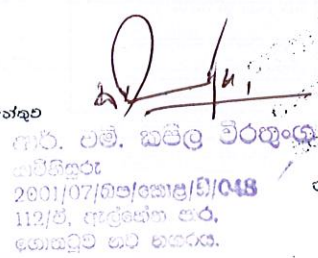 ආර්. එම්. කපිල වීරතුංග
2001/07/බප/කොළ/ඩී/048
112/ඒ, ඇල්හේන පාර,
ගොතටුව නව නගරය.